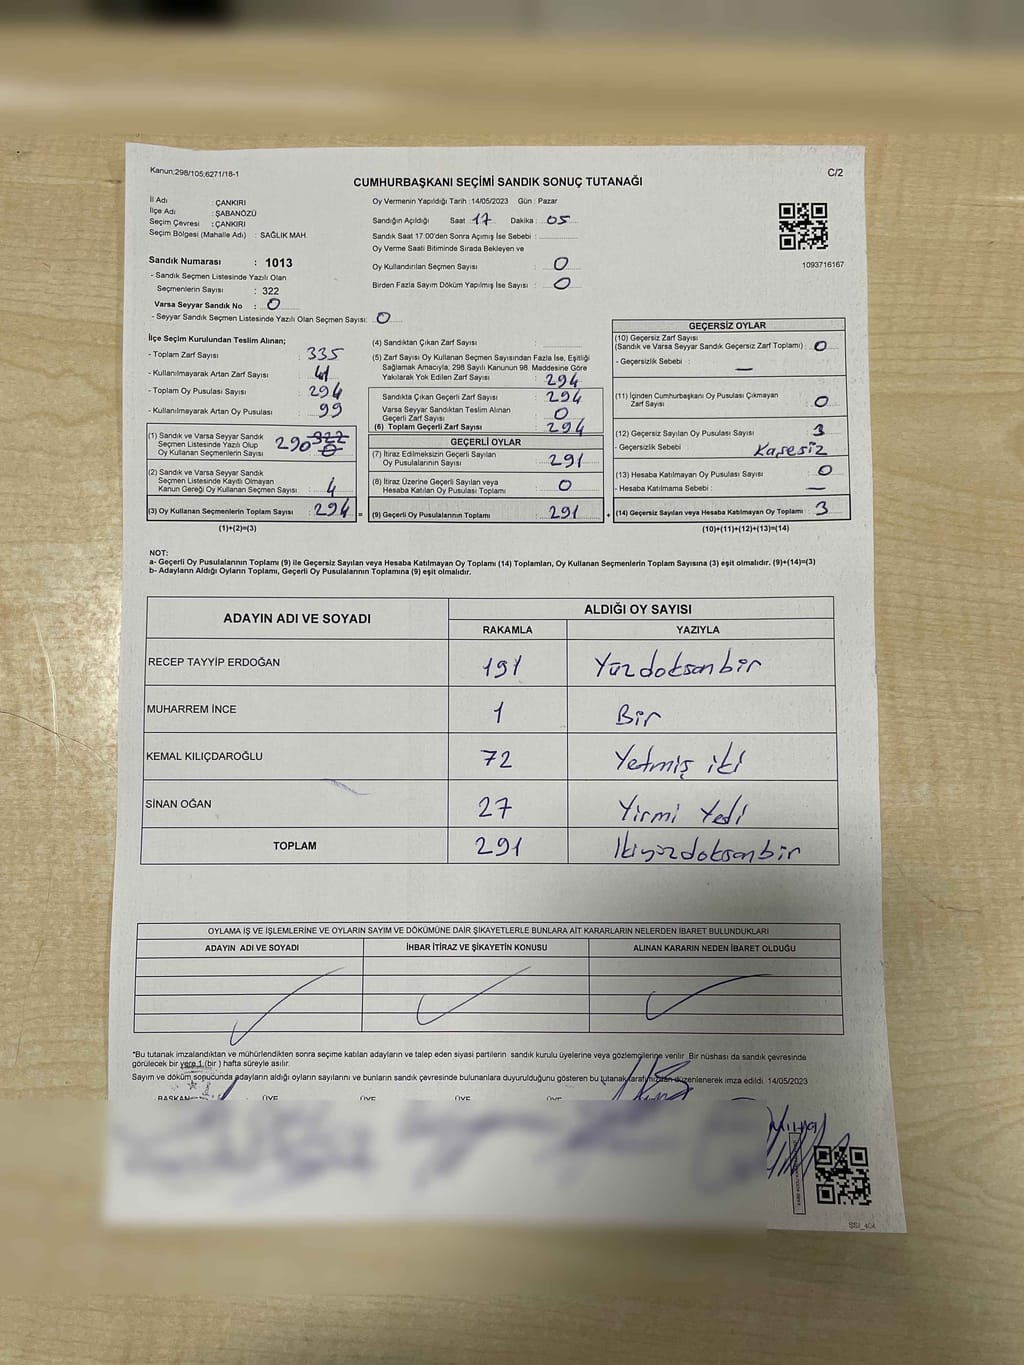 Kanun:298/105;6271/18-1
C/2
CUMHURBAŞKANI SEÇİMİ SANDIK SONUÇ TUTANAĞI
İl Adı : ÇANKIRI
İlçe Adı : ŞABANÖZÜ
Seçim Çevresi : ÇANKIRI
Seçim Bölgesi (Mahalle Adı) : SAĞLIK MAH.
Sandık Numarası : 1013
- Sandık Seçmen Listesinde Yazılı Olan
Seçmenlerin Sayısı : 322
Varsa Seyyar Sandık No : 0
- Seyyar Sandık Seçmen Listesinde Yazılı Olan Seçmen Sayısı: 0
Oy Vermenin Yapıldığı Tarih :14/05/2023 Gün : Pazar
Sandığın Açıldığı Saat : 17 Dakika : 05
Sandık Saat 17.00'den Sonra Açımış İse Sebebi :
Oy Verme Saati Bitiminde Sırada Bekleyen ve
Oy Kullandırılan Seçmen Sayısı : 0
Birden Fazla Sayım Döküm Yapılmış İse Sayısı : 0
1093716167
İlçe Seçim Kurulundan Teslim Alınan;
- Toplam Zarf Sayısı : 335
- Kullanılmayarak Artan Zarf Sayısı : 41
- Toplam Oy Pusulası Sayısı : 294
- Kullanılmayarak Artan Oy Pusulası : 99
(1) Sandık ve Varsa Seyyar Sandık
Seçmen Listesinde Yazılı Olup
Oy Kullanan Seçmenlerin Sayısı : 290 322 0
(2) Sandık ve Varsa Seyyar Sandık
Seçmen Listesinde Kayıtlı Olmayan
Kanun Gereği Oy Kullanan Seçmen Sayısı : 4
(3) Oy Kullanan Seçmenlerin Toplam Sayısı : 294 =
(1)+(2)=(3)
(4) Sandıktan Çıkan Zarf Sayısı :
(5) Zarf Sayısı Oy Kullanan Seçmen Sayısından Fazla İse, Eşitliği
Sağlamak Amacıyla, 298 Sayılı Kanunun 98. Maddesine Göre
Yakılarak Yok Edilen Zarf Sayısı : 294
Sandıkta Çıkan Geçerli Zarf Sayısı : 294
Varsa Seyyar Sandıktan Teslim Alınan
Geçerli Zarf Sayısı : 0
(6) Toplam Geçerli Zarf Sayısı : 294
GEÇERLİ OYLAR
(7) İtiraz Edilmeksizin Geçerli Sayılan
Oy Pusulasının Sayısı : 291
(8) İtiraz Üzerine Geçerli Sayılan veya
Hesaba Katılan Oy Pusulası Toplamı : 0
(9) Geçerli Oy Pusulalarının Toplamı : 291 +
GEÇERSİZ OYLAR
(10) Geçersiz Zarf Sayısı
(Sandık ve Varsa Seyyar Sandık Geçersiz Zarf Toplamı) : 0
- Geçersizlik Sebebi : —
(11) İçinden Cumhurbaşkanı Oy Pusulası Çıkmayan
Zarf Sayısı : 0
(12) Geçersiz Sayılan Oy Pusulası Sayısı : 3
- Geçersizlik Sebebi : Kaşesiz
(13) Hesaba Katılmayan Oy Pusulası Sayısı : 0
- Hesaba Katılmama Sebebi : —
(14) Geçersiz Sayılan veya Hesaba Katılmayan Oy Toplamı : 3
(10)+(11)+(12)+(13)=(14)
NOT:
a- Geçerli Oy Pusulalarının Toplamı (9) ile Geçersiz Sayılan veya Hesaba Katılmayan Oy Toplamı (14) Toplamları, Oy Kullanan Seçmenlerin Toplam Sayısına (3) eşit olmalıdır. (9)+(14)=(3)
b- Adayların Aldığı Oyların Toplamı, Geçerli Oy Pusulalarının Toplamına (9) eşit olmalıdır.
ADAYIN ADI VE SOYADI ALDIĞI OY SAYISI
RAKAMLA YAZIYLA
RECEP TAYYİP ERDOĞAN 191 Yüzdoksanbir
MUHARREM İNCE 1 Bir
KEMAL KILIÇDAROĞLU 72 Yetmiş iki
SİNAN OĞAN 27 Yirmi Yedi
TOPLAM 291 İkiyüzdoksanbir
OYLAMA İŞ VE İŞLEMLERİNE VE OYLARIN SAYIM VE DÖKÜMÜNE DAİR ŞİKAYETLERLE BUNLARA AİT KARARLARIN NELERDEN İBARET BULUNDUKLARI
ADAYIN ADI VE SOYADI İHBAR İTİRAZ VE ŞİKAYETİN KONUSU ALINAN KARARIN NEDEN İBARET OLDUĞU
*Bu tutanak imzalandıktan ve mühürlendikten sonra seçime katılan adayların ve talep eden siyasi partilerin sandık kurulu üyelerine veya gözlemcilerine verilir. Bir nüshası da sandık çevresinde
görülecek bir yere 1 (bir) hafta süreyle asılır.
Sayım ve döküm sonucunda adayların aldığı oyların sayılarını ve bunların sandık çevresinde bulunanlara duyurulduğunu gösteren bu tutanak tarafımızdan düzenlenerek imza edildi. 14/05/2023
BAŞKAN ÜYE ÜYE ÜYE ÜYE